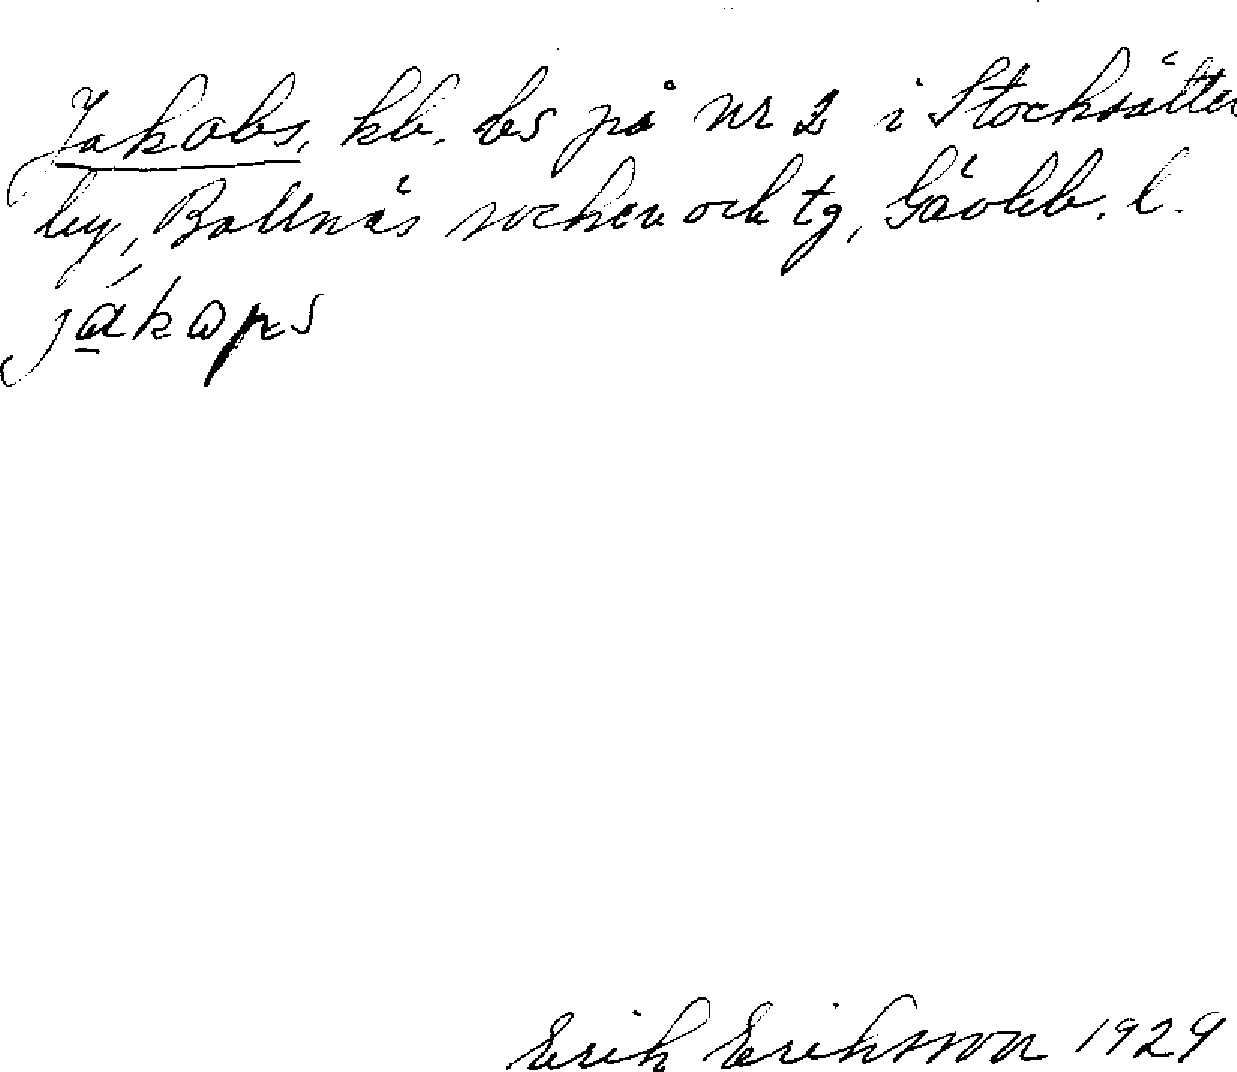 Jakobs, kb. bs på nr 2 i Stocksätter
by, Bollnäs socken och tg, Gävleb. l.
jákɷps
Erik Eriksson 1929